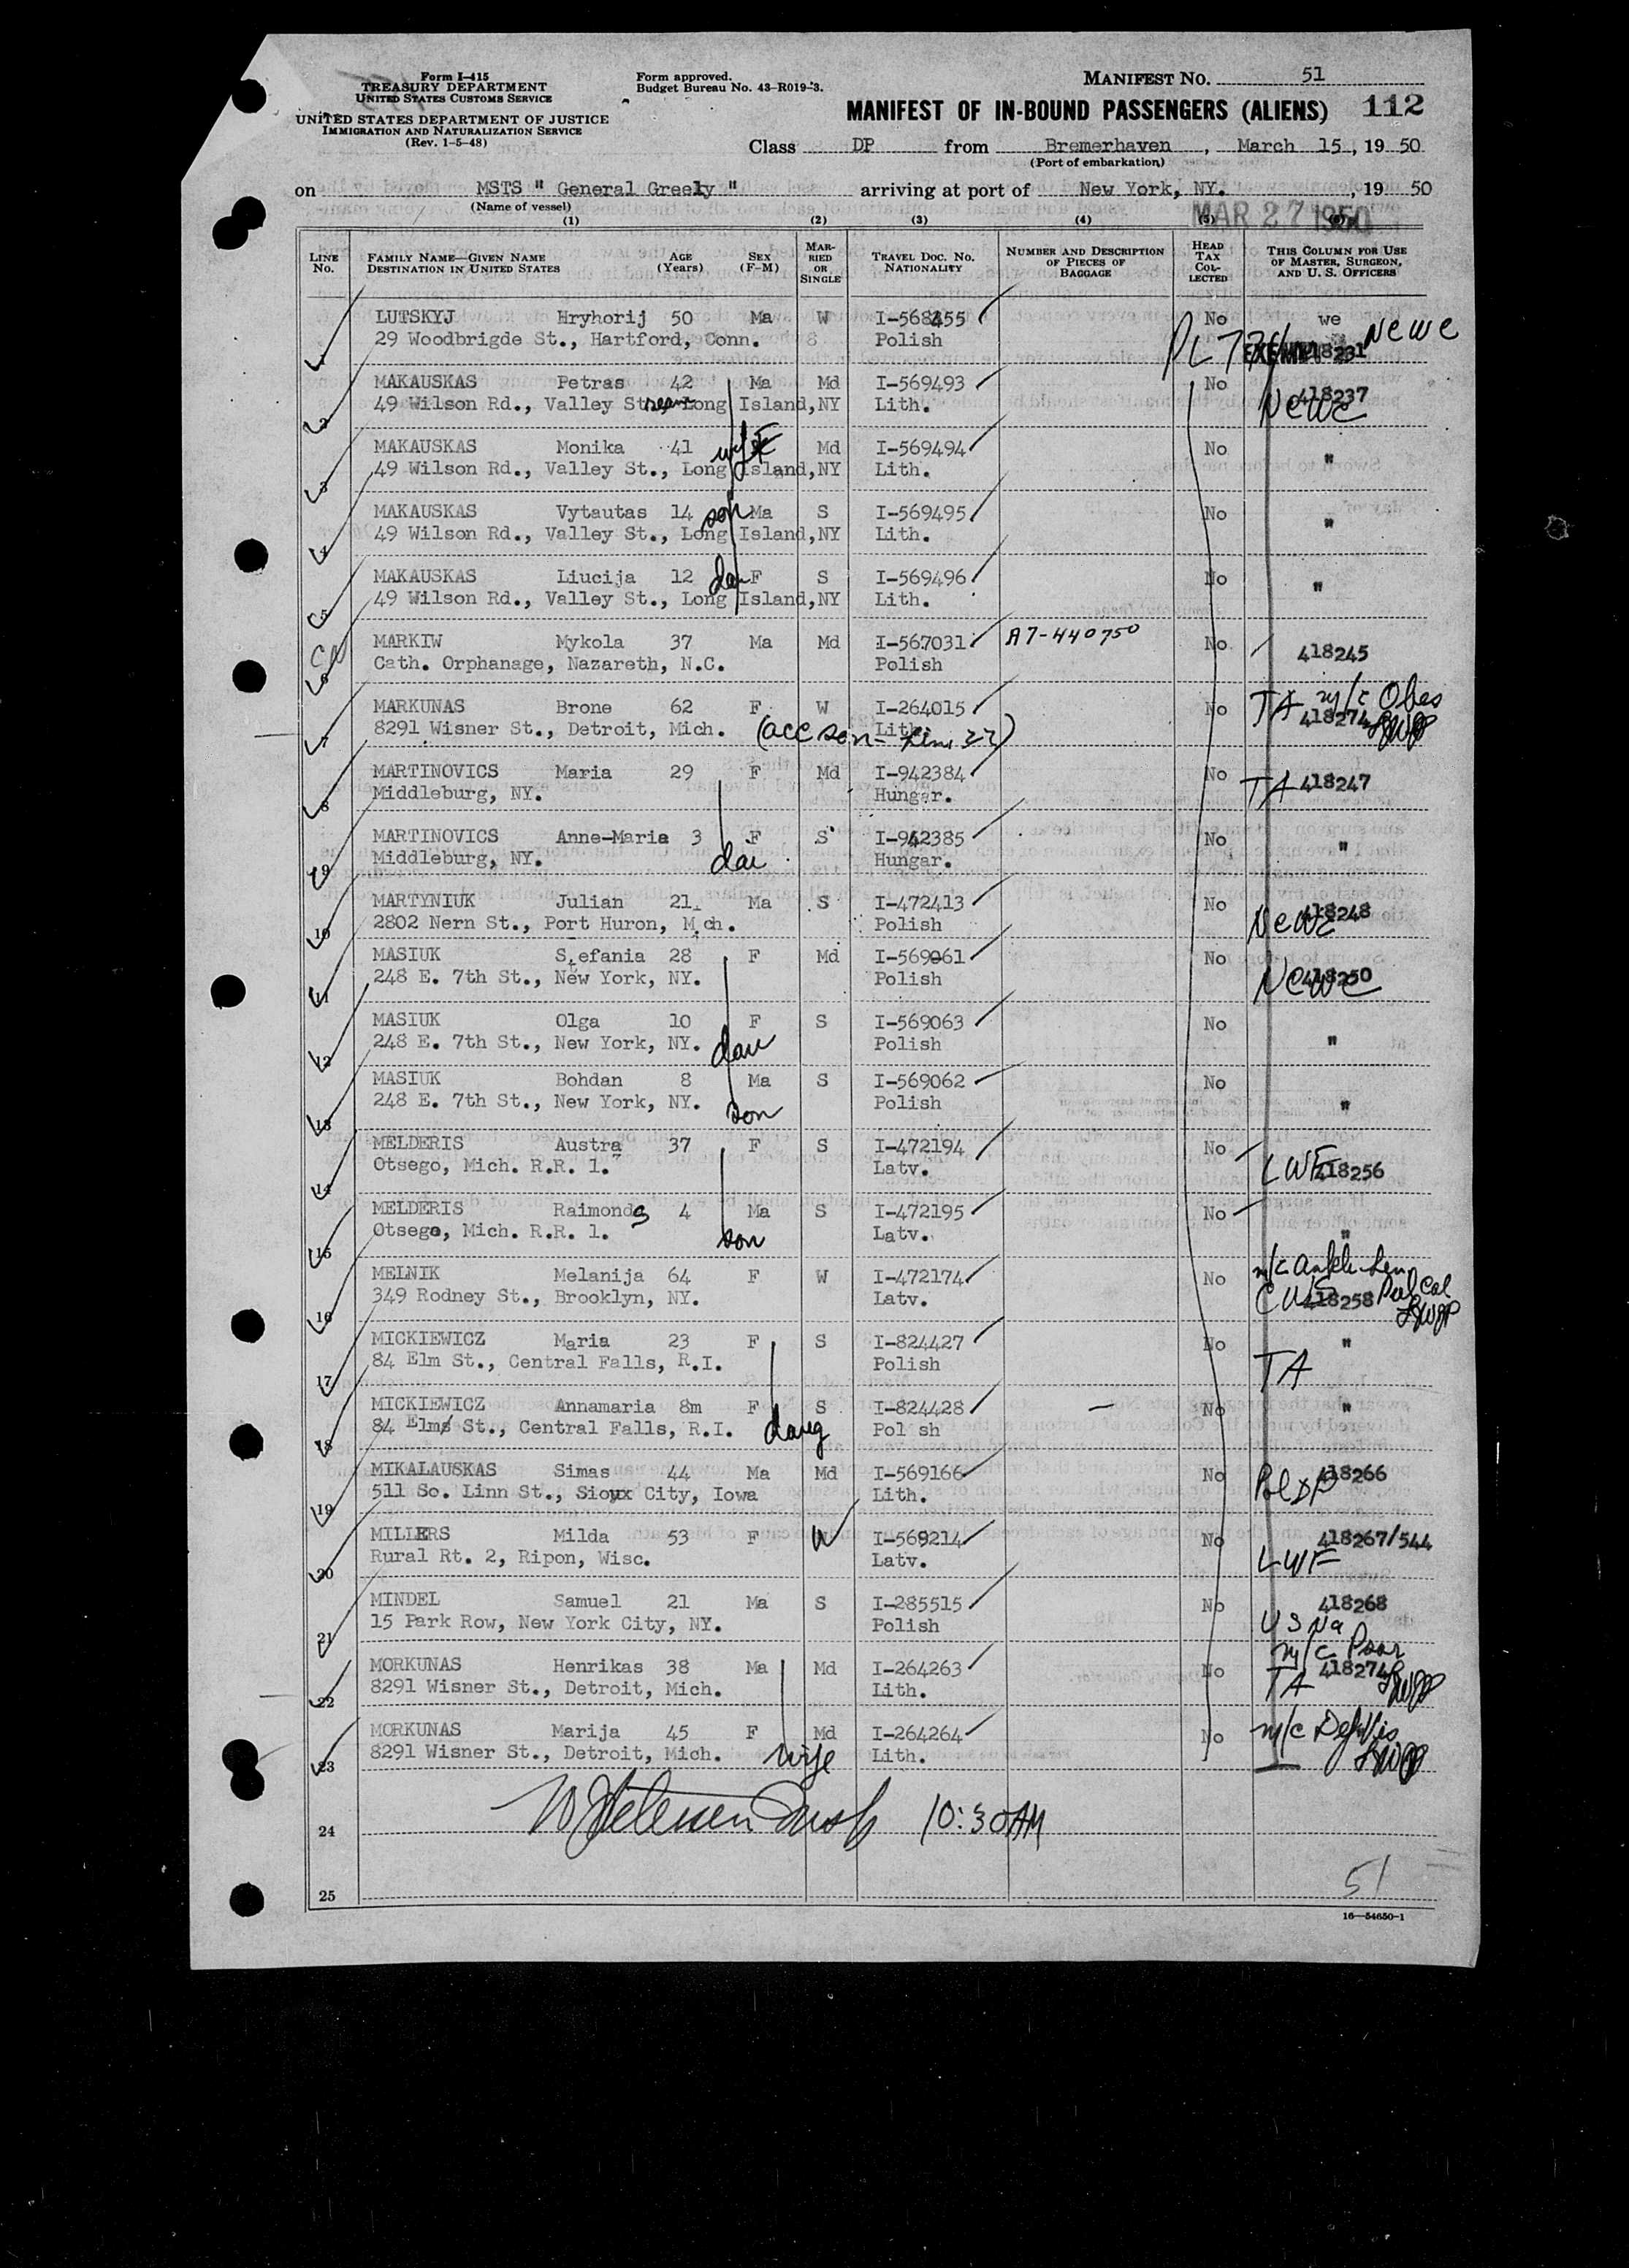 Form I-415
TREASURY DEPARTMENT
UNITED STATES CUSTOMS SERVICE
UNITED STATES DEPARTMENT OF JUSTICE
IMMIGRATION AND NATURALIZATION SERVICE
(Rev. 1-5-48)
Form approved.
Budget Bureau No. 43-R019-3.
MANIFEST NO. 51
MANIFEST OF IN-BOUND PASSENGERS (ALIENS) 112
Class DP from Bremerhaven, March 15, 19 50
(Port of embarkation)
on MSTS " General Greely " arriving at port of New York, NY. , 19 50
(Name of vessel)
MAR 27 1950
(1) (2) (3) (4) (5)
LINE No. FAMILY NAME—GIVEN NAME DESTINATION IN UNITED STATES AGE (Years) SEX (F-M) MARRIED OR SINGLE TRAVEL DOC. NO. NATIONALITY NUMBER AND DESCRIPTION OF PIECES OF BAGGAGE HEAD TAX COLLECTED THIS COLUMN FOR USE OF MASTER, SURGEON, AND U. S. OFFICERS
1 LUTSKYJ Hryhorij 50 Ma W I-568455 No we
29 Woodbrigde St., Hartford, Conn. Polish PL 774 EXEMPT 418231 Newc
2 MAKAUSKAS Petras 42 Ma Md I-569493 No 418237
49 Wilson Rd., Valley Stream Long Island, NY Lith. Newc
3 MAKAUSKAS Monika 41 wife F Md I-569494 No "
49 Wilson Rd., Valley St., Long Island, NY Lith.
4 MAKAUSKAS Vytautas 14 son Ma S I-569495 No "
49 Wilson Rd., Valley St., Long Island, NY Lith.
5 MAKAUSKAS Liucija 12 dau F S I-569496 No "
49 Wilson Rd., Valley St., Long Island, NY Lith.
6 MARKIW Mykola 37 Ma Md I-567031 A7-440750 No 418245
Cath. Orphanage, Nazareth, N.C. Polish
7 MARKUNAS Brone 62 F W I-264015 No TA m/c Obes
8291 Wisner St., Detroit, Mich. (acc son - Line 22) Lith. 418274
8 MARTINOVICS Maria 29 F Md I-942384 No TA 418247
Middleburg, NY. Hungar.
9 MARTINOVICS Anne-Marie 3 F S I-942385 No "
Middleburg, NY. dau Hungar.
10 MARTYNIUK Julian 21 Ma S I-472413 No 418248
2802 Nern St., Port Huron, Mich. Polish Newc
11 MASIUK Stefania 28 F Md I-569061 No
248 E. 7th St., New York, NY. Polish Newc 418250
12 MASIUK Olga 10 F S I-569063 No
248 E. 7th St., New York, NY. dau Polish "
13 MASIUK Bohdan 8 Ma S I-569062 No
248 E. 7th St., New York, NY. son Polish "
14 MELDERIS Austra 37 F S I-472194 No
Otsego, Mich. R.R. 1. Latv. LWF 418256
15 MELDERIS Raimonds 4 Ma S I-472195 No
Otsego, Mich. R.R. 1. son Latv. "
16 MELNIK Melanija 64 F W I-472174 No m/c
349 Rodney St., Brooklyn, NY. Latv. 418258
17 MICKIEWICZ Maria 23 F S I-824427 No "
84 Elm St., Central Falls, R.I. Polish TA
18 MICKIEWICZ Annamaria 8m F S I-824428 — No "
84 Elms St., Central Falls, R.I. daug Pol sh
19 MIKALAUSKAS Simas 44 Ma Md I-569166 No 418266
511 So. Linn St., Sioux City, Iowa Lith.
20 MILLERS Milda 53 F W I-569214 No 418267/544
Rural Rt. 2, Ripon, Wisc. Latv. LWF
21 MINDEL Samuel 21 Ma S I-285515 No 418268
15 Park Row, New York City, NY. Polish USNa
22 MORKUNAS Henrikas 38 Ma Md I-264263 No m/c 418274
8291 Wisner St., Detroit, Mich. Lith. TA
23 MORKUNAS Marija 45 F Md I-264264 No m/c Def Vis
8291 Wisner St., Detroit, Mich. wife Lith.
24 10:30 AM
25 51
16—54650-1